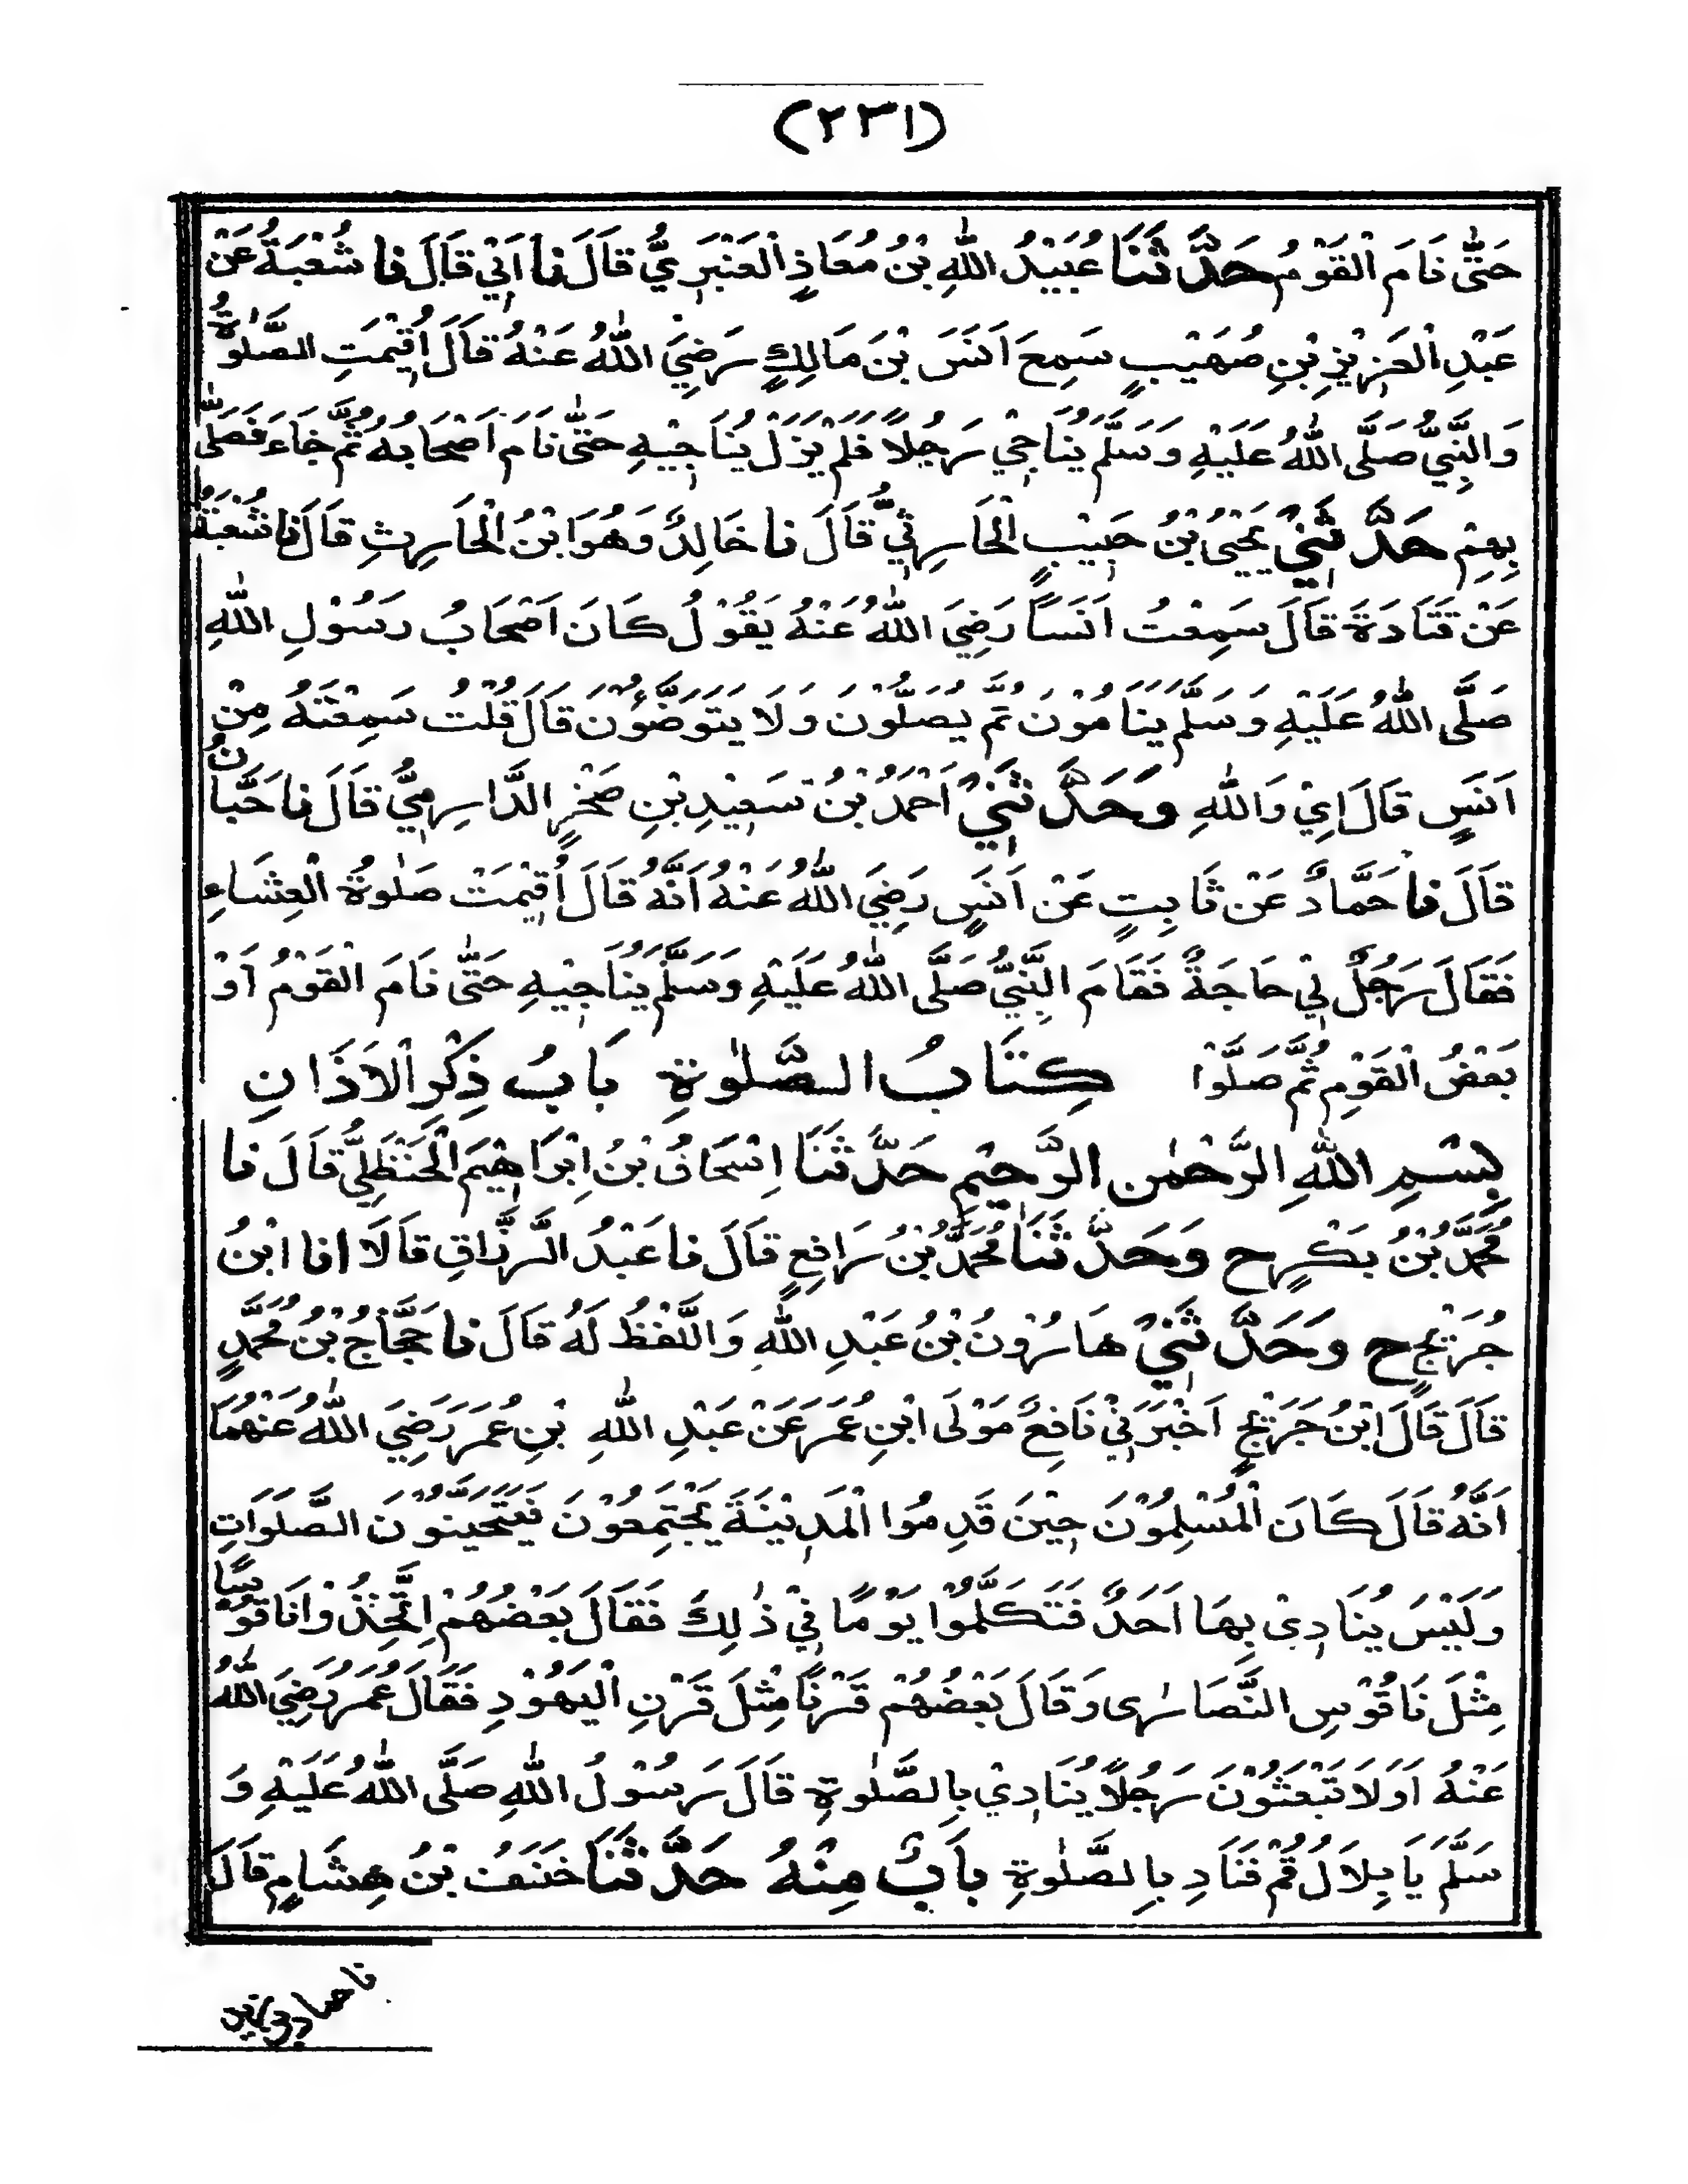 (٢٣١)
حَتّٰى نَامَ الْقَوْمُ حَدَّثَنَا عُبَيْدُ اللّٰهِ بْنُ مُعَاذٍ الْعَنْبَرِيُّ قَالَ نا اَبِيْ قَالَ نا شُعْبَةُ عَنْ
عَبْدِ الْعَزِيْزِ بْنِ صُهَيْبٍ سَمِعَ اَنَسَ بْنَ مَالِكٍ رَضِيَ اللّٰهُ عَنْهُ قَالَ اُقِيْمَتِ الصَّلٰوةُ
وَالنَّبِيُّ صَلَّى اللّٰهُ عَلَيْهِ وَسَلَّمَ يُنَاجِيْ رَجُلًا فَلَمْ يَزَلْ يُنَاجِيْهِ حَتّٰى نَامَ اَصْحَابُهُ ثُمَّ جَاءَ فَصَلّٰى
بِهِمْ حَدَّثَنِيْ يَحْيَى بْنُ حَبِيْبٍ الْحَارِثِيُّ قَالَ نا خَالِدٌ وَهُوَ ابْنُ الْحَارِثِ قَالَ نا شُعْبَةُ
عَنْ قَتَادَةَ قَالَ سَمِعْتُ اَنَسًا رَضِيَ اللّٰهُ عَنْهُ يَقُوْلُ كَانَ اَصْحَابُ رَسُوْلِ اللّٰهِ
صَلَّى اللّٰهُ عَلَيْهِ وَسَلَّمَ يَنَامُوْنَ ثُمَّ يُصَلُّوْنَ وَلَا يَتَوَضَّؤُنَ قَالَ قُلْتُ سَمِعْتَهُ مِنْ
اَنَسٍ قَالَ اِيْ وَاللّٰهِ وَحَدَّثَنِيْ اَحْمَدُ بْنُ سَعِيْدِ بْنِ صَخْرٍ الدَّارِمِيُّ قَالَ نا حَبَّانُ
قَالَ نا حَمَّادٌ عَنْ ثَابِتٍ عَنْ اَنَسٍ رَضِيَ اللّٰهُ عَنْهُ اَنَّهُ قَالَ اُقِيْمَتْ صَلٰوةُ الْعِشَاءِ
فَقَالَ رَجُلٌ لِيْ حَاجَةٌ فَقَامَ النَّبِيُّ صَلَّى اللّٰهُ عَلَيْهِ وَسَلَّمَ يُنَاجِيْهِ حَتّٰى نَامَ الْقَوْمُ اَوْ
بَعْضُ الْقَوْمِ ثُمَّ صَلَّوْا كِتَابُ الصَّلٰوةِ بَابُ ذِكْرِ الْاَذَانِ
بِسْمِ اللّٰهِ الرَّحْمٰنِ الرَّحِيْمِ حَدَّثَنَا اِسْحَاقُ بْنُ اِبْرَاهِيْمَ الْحَنْظَلِيُّ قَالَ نا
مُحَمَّدُ بْنُ بَكْرٍ ح وَحَدَّثَنَا مُحَمَّدُ بْنُ رَافِعٍ قَالَ نا عَبْدُ الرَّزَّاقِ قَالَا انا ابْنُ
جُرَيْجٍ ح وَحَدَّثَنِيْ هَارُوْنُ بْنُ عَبْدِ اللّٰهِ وَاللَّفْظُ لَهُ قَالَ نا حَجَّاجُ بْنُ مُحَمَّدٍ
قَالَ قَالَ ابْنُ جُرَيْجٍ اَخْبَرَنِيْ نَافِعٌ مَوْلَى ابْنِ عُمَرَ عَنْ عَبْدِ اللّٰهِ بْنِ عُمَرَ رَضِيَ اللّٰهُ عَنْهُمَا
اَنَّهُ قَالَ كَانَ الْمُسْلِمُوْنَ حِيْنَ قَدِمُوا الْمَدِيْنَةَ يَجْتَمِعُوْنَ فَيَتَحَيَّنُوْنَ الصَّلَوَاتِ
وَلَيْسَ يُنَادِيْ بِهَا اَحَدٌ فَتَكَلَّمُوْا يَوْمًا فِيْ ذٰلِكَ فَقَالَ بَعْضُهُمْ اِتَّخِذُوْا نَاقُوْسًا
مِثْلَ نَاقُوْسِ النَّصَارٰى وَقَالَ بَعْضُهُمْ قَرْنًا مِثْلَ قَرْنِ الْيَهُوْدِ فَقَالَ عُمَرُ رَضِيَ اللّٰهُ
عَنْهُ اَوَلَا تَبْعَثُوْنَ رَجُلًا يُنَادِيْ بِالصَّلٰوةِ قَالَ رَسُوْلُ اللّٰهِ صَلَّى اللّٰهُ عَلَيْهِ وَ
سَلَّمَ يَا بِلَالُ قُمْ فَنَادِ بِالصَّلٰوةِ بَابٌ مِنْهُ حَدَّثَنَا خَلَفُ بْنُ هِشَامٍ قَالَ
نا حماد بن زيد